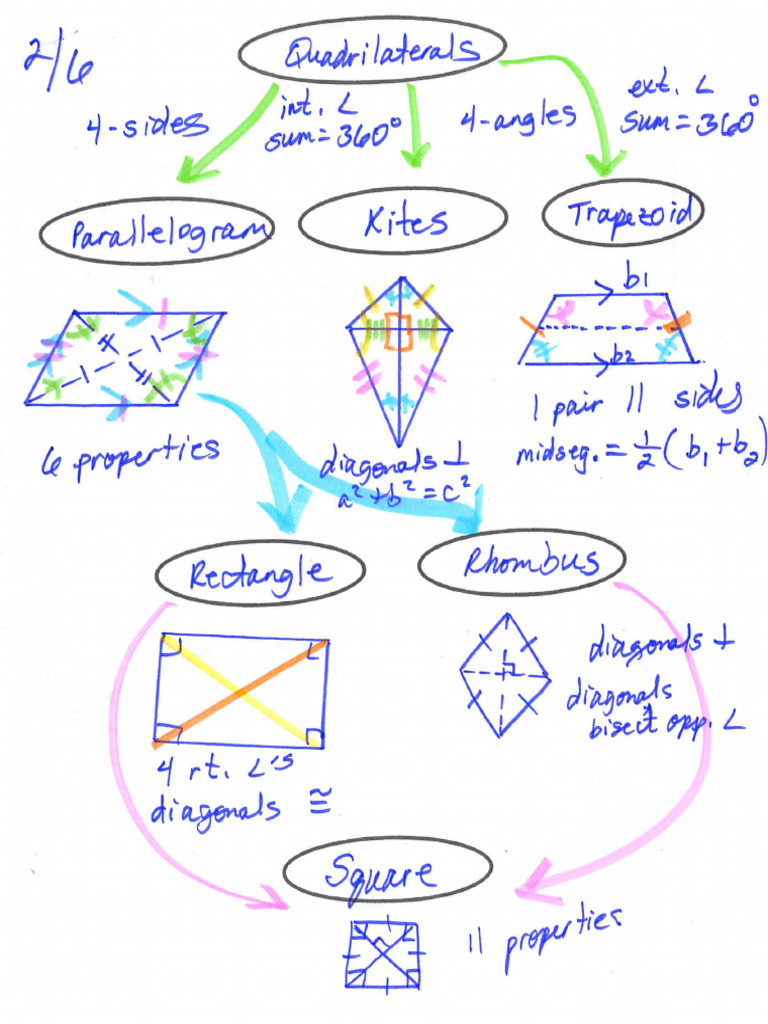 2/6
Quadrilaterals
4-sides
int. ∠
sum = 360°
4-angles
ext. ∠
sum = 360°
Parallelogram
Kites
Trapezoid
b₁
b₂
6 properties
diagonals ⊥
a² + b² = c²
1 pair || sides
midseg. = ½(b₁ + b₂)
Rectangle
Rhombus
4 rt. ∠'s
diagonals ≅
diagonals ⊥
diagonals
bisect opp. ∠
Square
11 properties